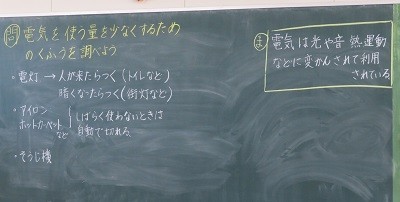 問 電気を使う量を少なくするため
のくふうを調べよう
・電灯 → 人が来たらつく (トイレなど)
暗くなったらつく (街灯など)
・アイロン
ホットカーペット
など
しばらく使わないときは
自動で切れる
・そうじ機
ま 電気は光や音 熱 運動
などに変かんされて利用
されている